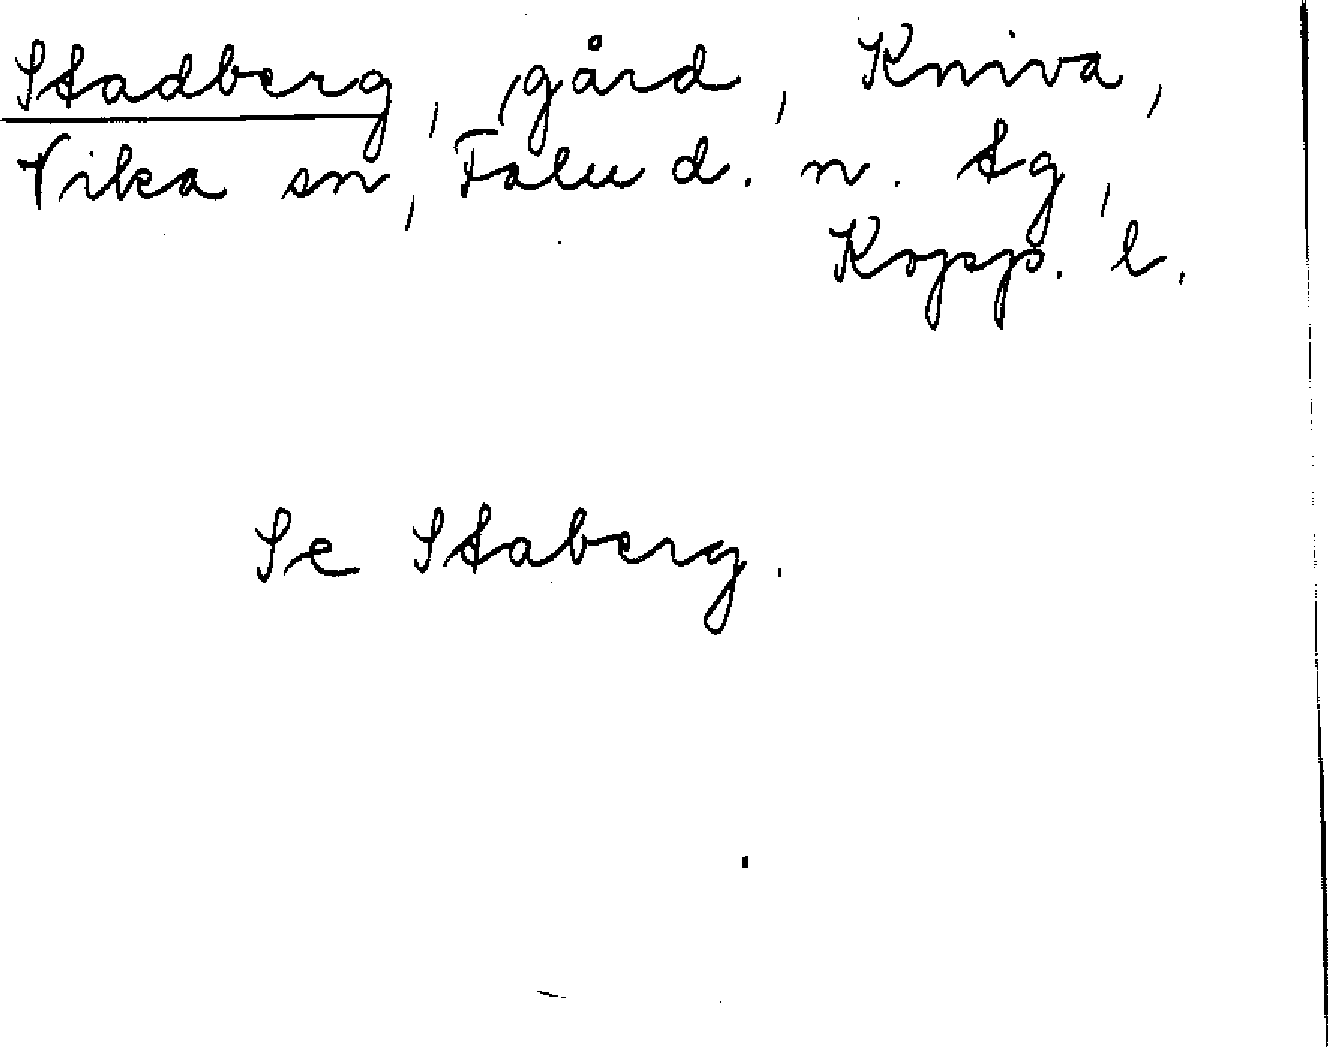 Stadberg, gård, Kniva,
Vika sn, Falu d. n. tg,
Kopp. l.
Se Staberg.